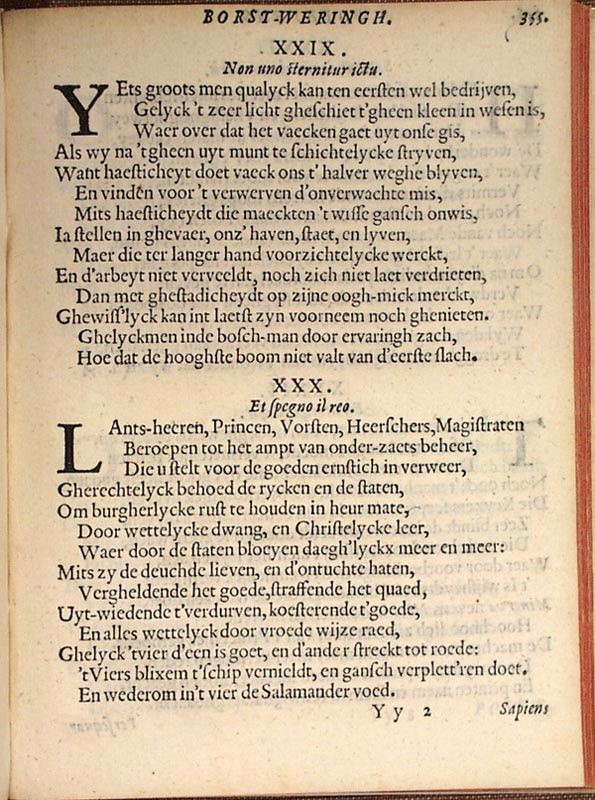 BORST-WERINGH. 355.
XXIX.
Non uno sternitur ictu.
YEts groots men qualyck kan ten eersten wel bedrijven,
Gelyck 't zeer licht gheschiet t'gheen kleen in wesen is,
Waer over dat het vaecken gaet uyt onse gis,
Als wy na 't gheen uyt munt te schichtelycke stryven,
Want haesticheyt doet vaeck ons t' halver weghe blyven,
En vinden voor 't verwerven d'onverwachte mis,
Mits haesticheydt die maeckten 't wisse gansch onwis,
Ia stellen in ghevaer, onz' haven, staet, en lyven,
Maer die ter langer hand voorzichtelycke werckt,
En d'arbeyt niet verveeldt, noch zich niet laet verdrieten,
Dan met ghestadicheydt op zijne oogh-mick merckt,
Ghewiss'lyck kan int laetst zyn voorneem noch ghenieten.
Ghelyckmen inde bosch-man door ervaringh zach,
Hoe dat de hooghste boom niet valt van d'eerste slach.
XXX.
Et spegno il reo.
LAnts-heeren, Princen, Vorsten, Heerschers, Magistraten
Beroepen tot het ampt van onder-zaets beheer,
Die u stelt voor de goeden ernstich in verweer,
Gherechtelyck behoed de rycken en de staten,
Om burgherlycke rust te houden in heur mate,
Door wettelycke dwang, en Christelycke leer,
Waer door de staten bloeyen daegh'lyckx meer en meer:
Mits zy de deuchde lieven, en d'ontuchte haten,
Vergheldende het goede, straffende het quaed,
Uyt-wiedende t'verdurven, koesterende t'goede,
En alles wettelyck door vroede wijze raed,
Ghelyck 'tvier d'een is goet, en d'ander streckt tot roede:
'tViers blixem t'schip vernieldt, en gansch verplett'ren doet.
En wederom in't vier de Salamander voed.
Yy 2 Sapiens